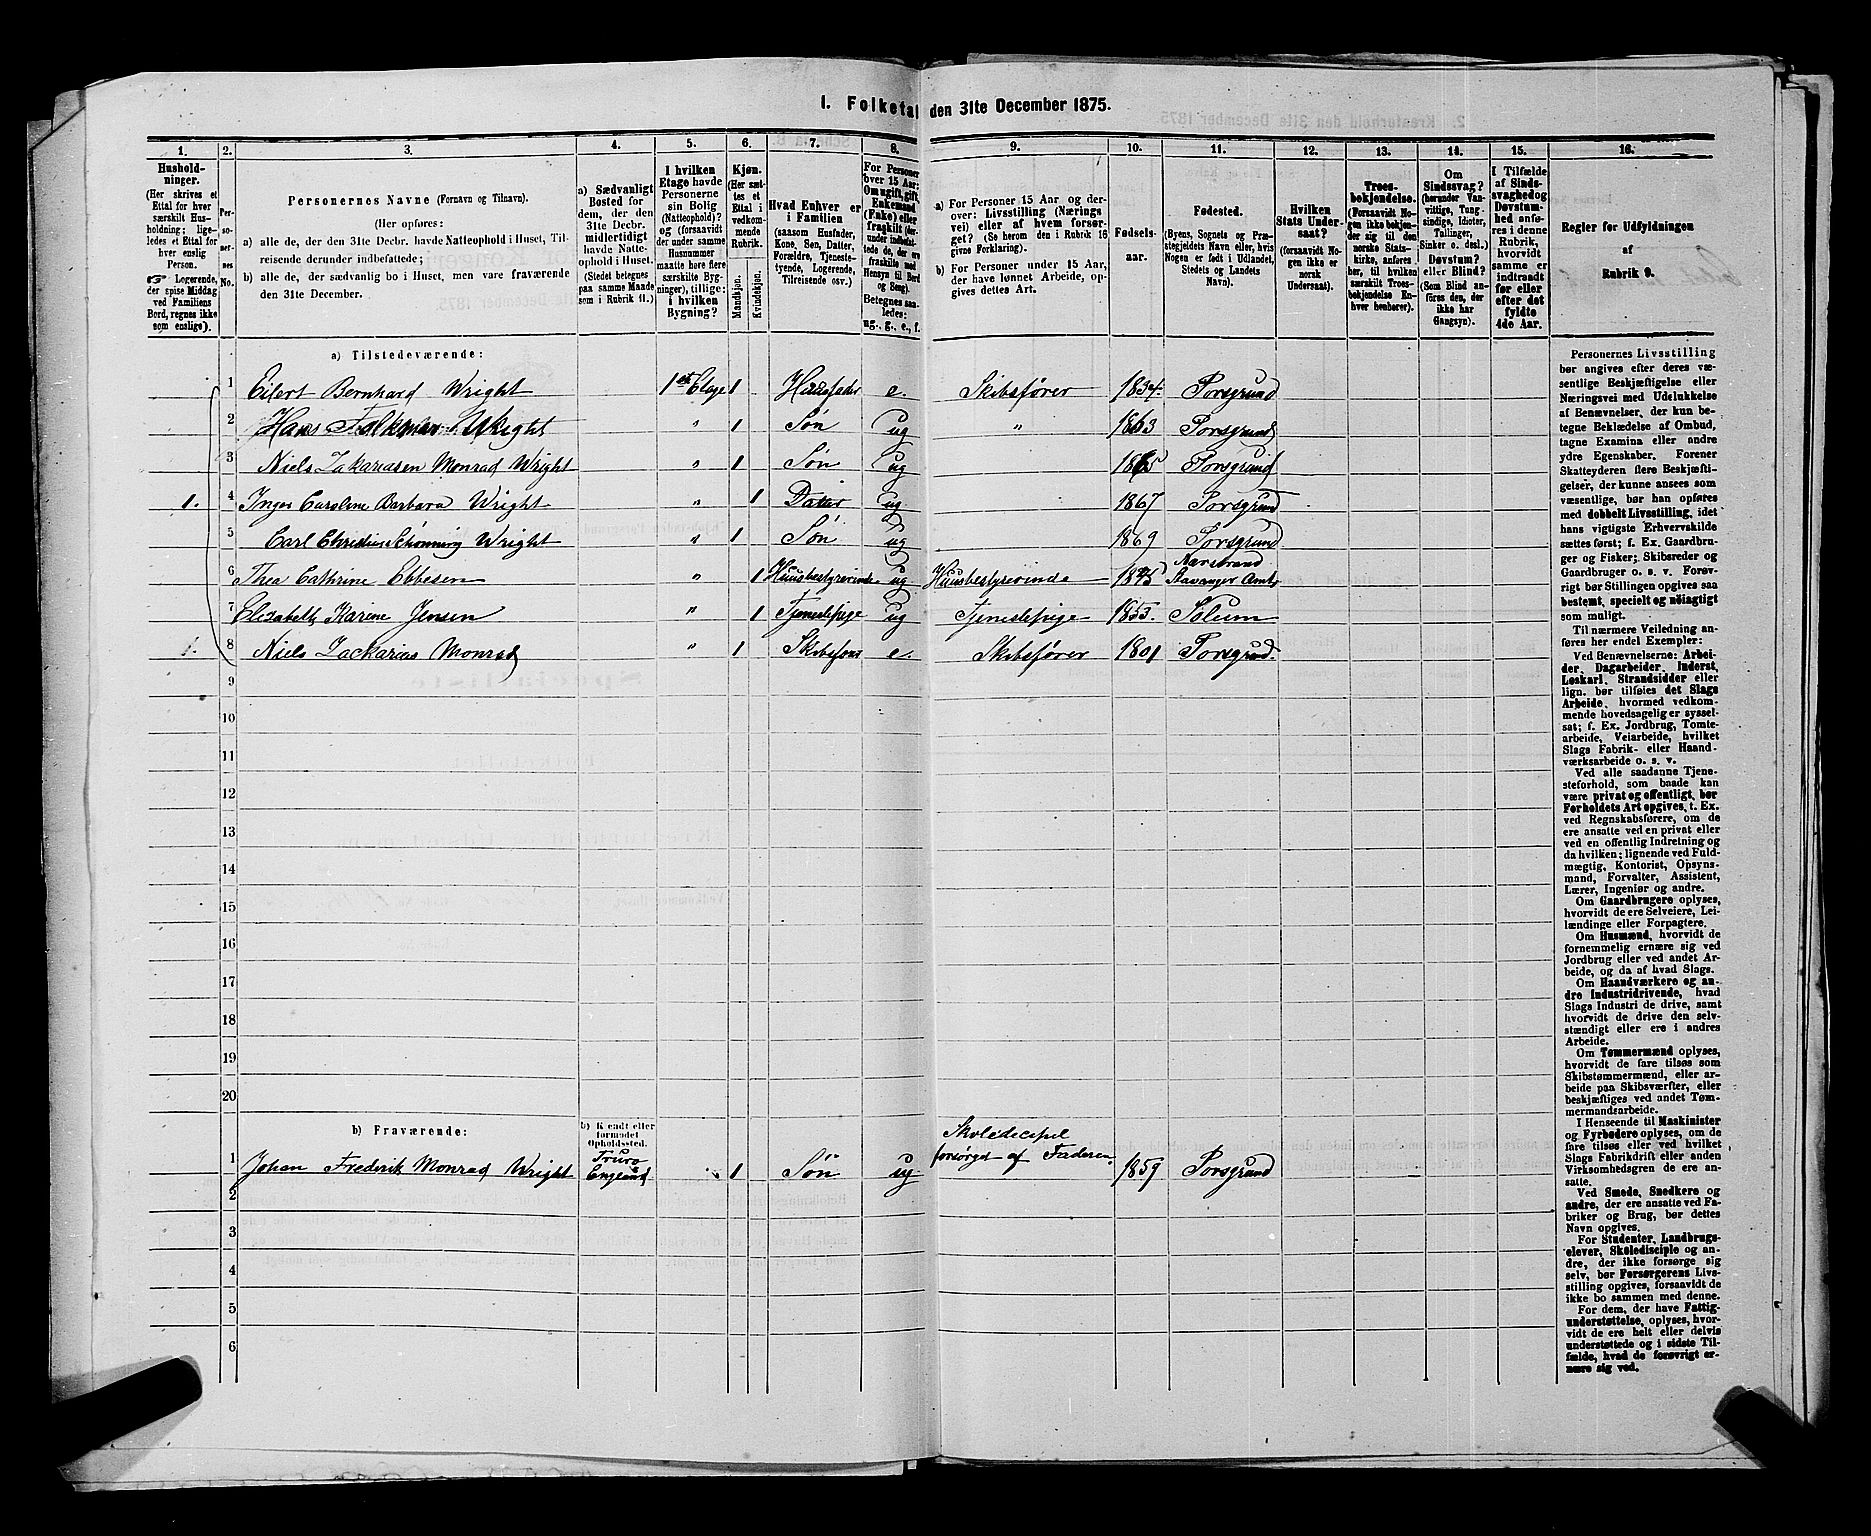 I. Folketal den 31te December 1875.
1. 2. 3. 4. 5. 6. 7. 8. 9. 10. 11. 12. 13. 14. 15. 16.
Hushold-
ninger.
(Her skrives et
Ettal for hver
særskilt Hus-
holdning; lige-
ledes et Ettal for
hver enslig
Person.
☞ Logerende,
der spise Middag
ved Familiens
Bord, regnes ikke
som enslige).
Per-
so-
ner-
nes
No.
Personernes Navne (Fornavn og Tilnavn).
(Her opføres:
a) alle de, der den 31te Decbr. havde Natteophold i Huset, Til-
reisende derunder indbefattede;
b) alle de, der sædvanlig bo i Huset, men vare fraværende
den 31te December.
a) Sædvanligt
Bosted for
dem, der den
31te Decbr.
midlertidigt
havde Natte-
ophold i Huset.
(Stedet betegnes
paa samme Maade
som i Rubrik 11.)
I hvilken
Etage havde
Personerne
sin Bolig
(Natteophold)?
og (forsaavidt
der under samme
Husnummer
maatte høre flere
særskilte Byg-
ninger), tillige:
i hvilken
Bygning?
Kjøn.
(Her sæt-
tes et
Ettal i
vedkom-
mende
Rubrik.
Mandkjøn.
Kvindekjøn.
Hvad Enhver er
i Familien
(saasom Husfader,
Kone, Søn, Datter,
Forældre, Tjeneste-
tyende, Logerende,
Tilreisende osv.)
For Personer
over 15 Aar:
Om ugift, gift,
Enkemand
(Enke) eller
fraskilt (her-
under indbefat-
tede de, der ere
fraskilte med
Hensyn til Bord
og Seng)
Betegnes saa-
ledes:
ug., g., e., f.
a) For Personer 15 Aar og der-
over: Livsstilling (Nærings-
vei) eller af hvem forsør-
get? (Se herom den i Rubrik 16
givne Forklaring).
b) For Personer under 15 Aar,
der have lønnet Arbeide, op-
gives dettes Art.
Fødsels-
aar.
Fødested.
(Byens, Sognets og Præ-
stegjeldets Navn eller, hvis
Nogen er født i Udlandet,
Stedets og Landets
Navn).
Hvilken
Stats Under-
saat?
(forsaavidt No-
gen ikke er
norsk
Undersaat).
Troes-
bekjendelse.
(Forsaavidt No-
gen ikke bekjen-
der sig til den
norske Stats-
kirke, anføres
her, til hvilken
særskilt Troes-
bekjendelse En-
hver henhører).
Om
Sindssvag?
(herunder Van-
vittige, Tung-
sindige, Idioter,
Tallinger,
Sinker o. desl.)
Døvstum?
eller Blind?
(Som Blind an-
føres den, der
ikke har
Gangsyn).
I Tilfælde
af Sinds-
svaghed og
Døvstum-
hed anfø-
res i denne
Rubrik,
hvorvidt
samme er
indtraadt
før eller
efter det
fyldte
4de Aar.
Regler for Udfyldningen
af
Rubrik 9.
a) Tilstedeværende:
1 Eilert Bernhard Wright 1ste Etage 1 Huusfader e. Skibsfører 1834. Porsgrund
2 Hans Falkman Wright " 1 Søn ug " 1863 Porsgrund
3 Niels Zakariasen Monrad Wright " 1 Søn ug 1865 Porsgrund
1. 4 Inger Caroline Barbara Wright " 1 Datter ug 1867 Porsgrund
5 Carl Christian Schønning Wright " 1 Søn ug 1869 Porsgrund
6 Thea Cathrine Ebbesen " 1 Huusbestyrerinde ug Huusbestyrerinde Stavanger Amt
7 Elisabeth Karine Jensen " 1 Tjenestepige ug Tjenestepige 1853. Solum
1. 8 Niels Zackarias Monrad " 1 Skibsfører e. Skibsfører 1801 Porsgrund.
9
10
11
12
13
14
15
16
17
18
19
20
b) Fraværende:
b) Kjendt eller
formodet
Opholdssted.
1 Johan Frederik Monrad Wright Truro England 1 Søn ug Skoledecipel forsørget af Faderen 1859 Porsgrund
2
3
4
5
6
Personernes Livsstilling
bør angives efter deres væ-
sentlige Beskjæftigelse eller
Næringsvei med Udelukkelse
af Benævnelser, der kun be-
tegne Beklædelse af Ombud,
tagne Examina eller andre
ydre Egenskaber. Forener
Skatteyderen flere Beskjæfti-
gelser, der kunne ansees som
væsentlige, bør han opføres
med dobbelt Livsstilling, idet
hans vigtigste Erhvervskilde
sættes først; f. Ex. Gaardbru-
ger og Fisker; Skibsreder og
Gaardbruger o. s. v. Forøv-
rigt bør Stillingen opgives saa
bestemt, specielt og nøiagtigt
som muligt.
Til nærmere Veiledning an-
føres her endel Exempler:
Ved Benævnelserne: Arbei-
der, Dagarbeider, Inderst,
Løskarl, Strandsidder eller
lign. bør tilføies det Slags
Arbeide, hvormed vedkom-
mende hovedsagelig er syssel-
sat; f. Ex. Jordbrug, Tomte-
arbeide, Veiarbeide, hvilket
Slags Fabrik- eller Haand-
værksarbeide o. s. v.
Ved alle saadanne Tjene-
steforhold, som baade kan
være privat og offentligt, bør
Forholdets Art opgives, t. Ex.
ved Regnskabsførere, om de
ere ansatte ved en privat eller
ved en offentlig Indretning og
da hvilken; lignende ved Fuld-
mægtig, Kontorist, Opsyns-
mand, Forvalter, Assistent,
Lærer, Ingeniør og andre.
Om Gaardbrugere oplyses,
hvorvidt de ere Selveiere, Lei-
lændinge eller Forpagtere.
Om Husmænd, hvorvidt de
fornemmelig ernære sig ved
Jordbrug eller ved andet Ar-
beide, og da af hvad Slags.
Om Haandværkere og an-
dre Industridrivende, hvad
Slags Industri de drive, samt
hvorvidt de drive den selv-
stændigt eller ere i andres
Arbeide.
Om Tømmermænd oplyses,
hvorvidt de fare tilsøs som
Skibstømmermænd, eller ar-
beide paa Skibsværfter, eller
beskjæftiges ved andet Tøm-
mermandsarbeide.
I Henseende til Maskinister
og Fyrbødere oplyses, om de
fare tilsøs eller ved hvilket
Slags Fabrikdrift eller anden
Virksomhedsgren de ere an-
satte.
Ved Smede, Snedkere og
andre, der ere ansatte ved Fa-
briker og Brug, bør dettes
Navn opgives.
For Studenter, Landbrugs-
elever, Skoledisciple og an-
dre, der ikke forsørge sig
selv, bør Forsørgerens Livs-
stilling opgives, forsaavidt de
ikke bo sammen med denne.
For dem, der have Fattig-
understøttelse, oplyses, hvor-
vidt de ere helt eller delvis
understøttede og i sidste Til-
fælde, hvad de forøvrigt er-
nære sig ved.